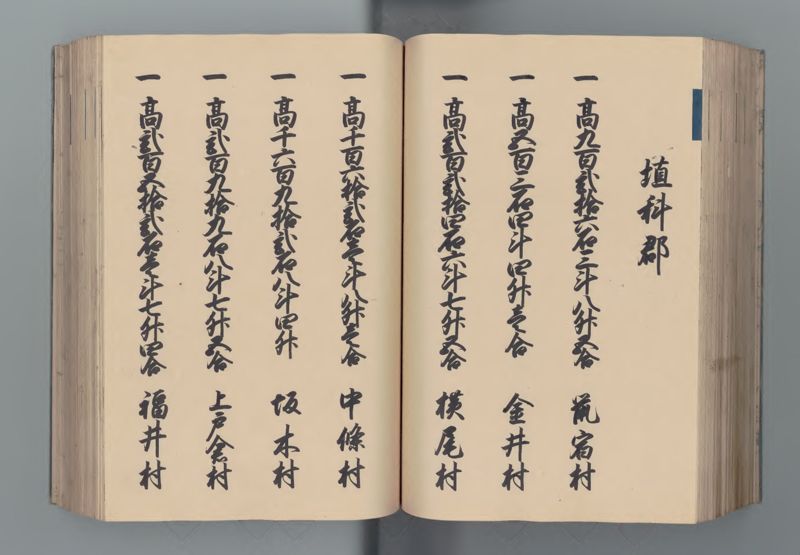 埴科郡
一 高九百弐拾六石三斗八升五合 鼠宿村
一 高五百三石四斗四升壱合 金井村
一 高弐百弐拾四石六斗七升五合 横尾村
一 高千百六拾弐石壱斗八升壱合 中條村
一 高千六百九拾弐石八斗四升 坂木村
一 高弐百九拾九石八斗七升五合 上戸倉村
一 高弐百五拾弐石壱斗七升四合 福井村